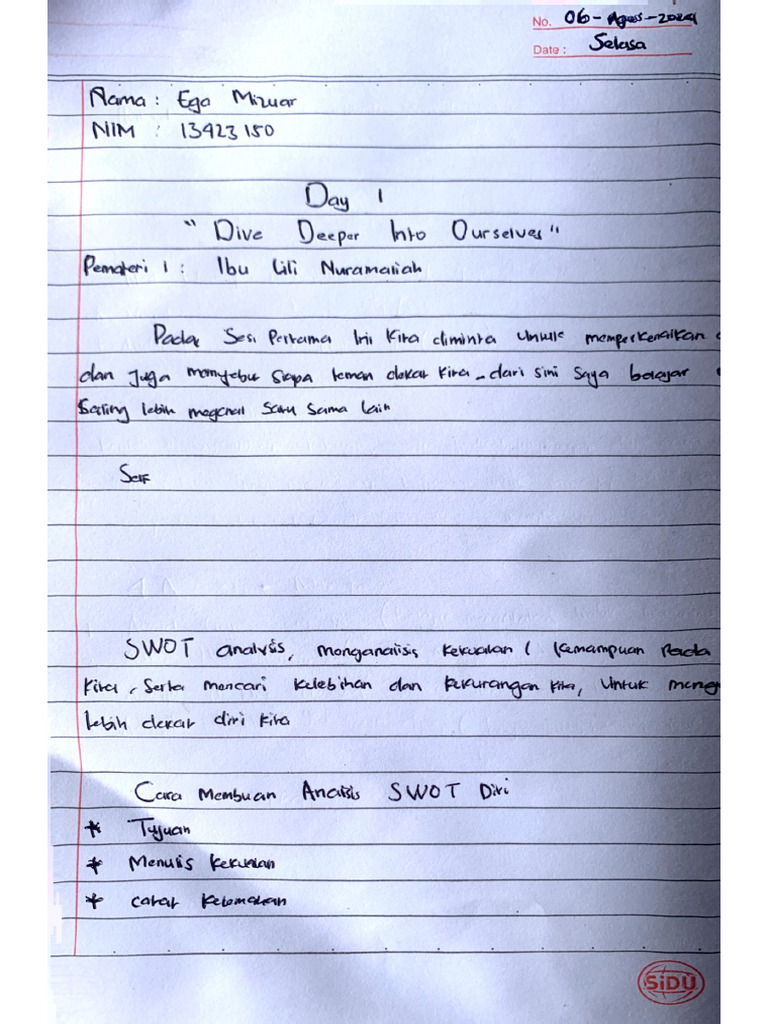 No. 06-Agus-2024
Date: Selasa
Nama : Ega Mizuar
NIM : 13423150
Day 1
"Dive Deeper Into Ourselves"
Pemateri 1 : Ibu Lili Nuramaliah
Pada Sesi Pertama Ini Kita diminta Untuk memperkenalkan
dan Juga menyebut Siapa teman dekat Kita - dari sini Saya belajar
Saling lebih megenal Satu Sama lain
Self
SWOT analysis, menganalisis kekuatan / kemampuan Pada
Kita, Serta mencari kelebihan dan kekurangan kita, Untuk meng
lebih dekat diri kita
Cara Membuan Analisis SWOT Diri
* Tujuan
* Menulis kekuatan
* catat kelemahan
SiDU